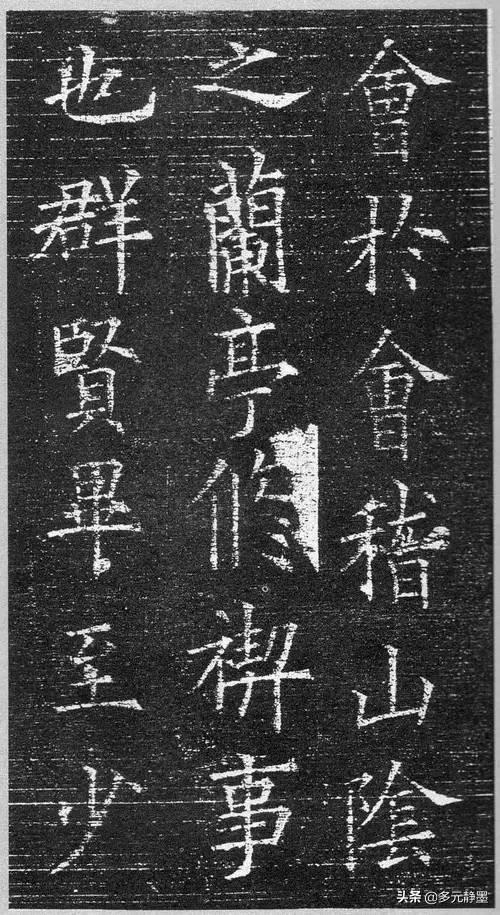 會於會稽山陰
之蘭亭修禊事
也群賢畢至少
头条 @多元静墨